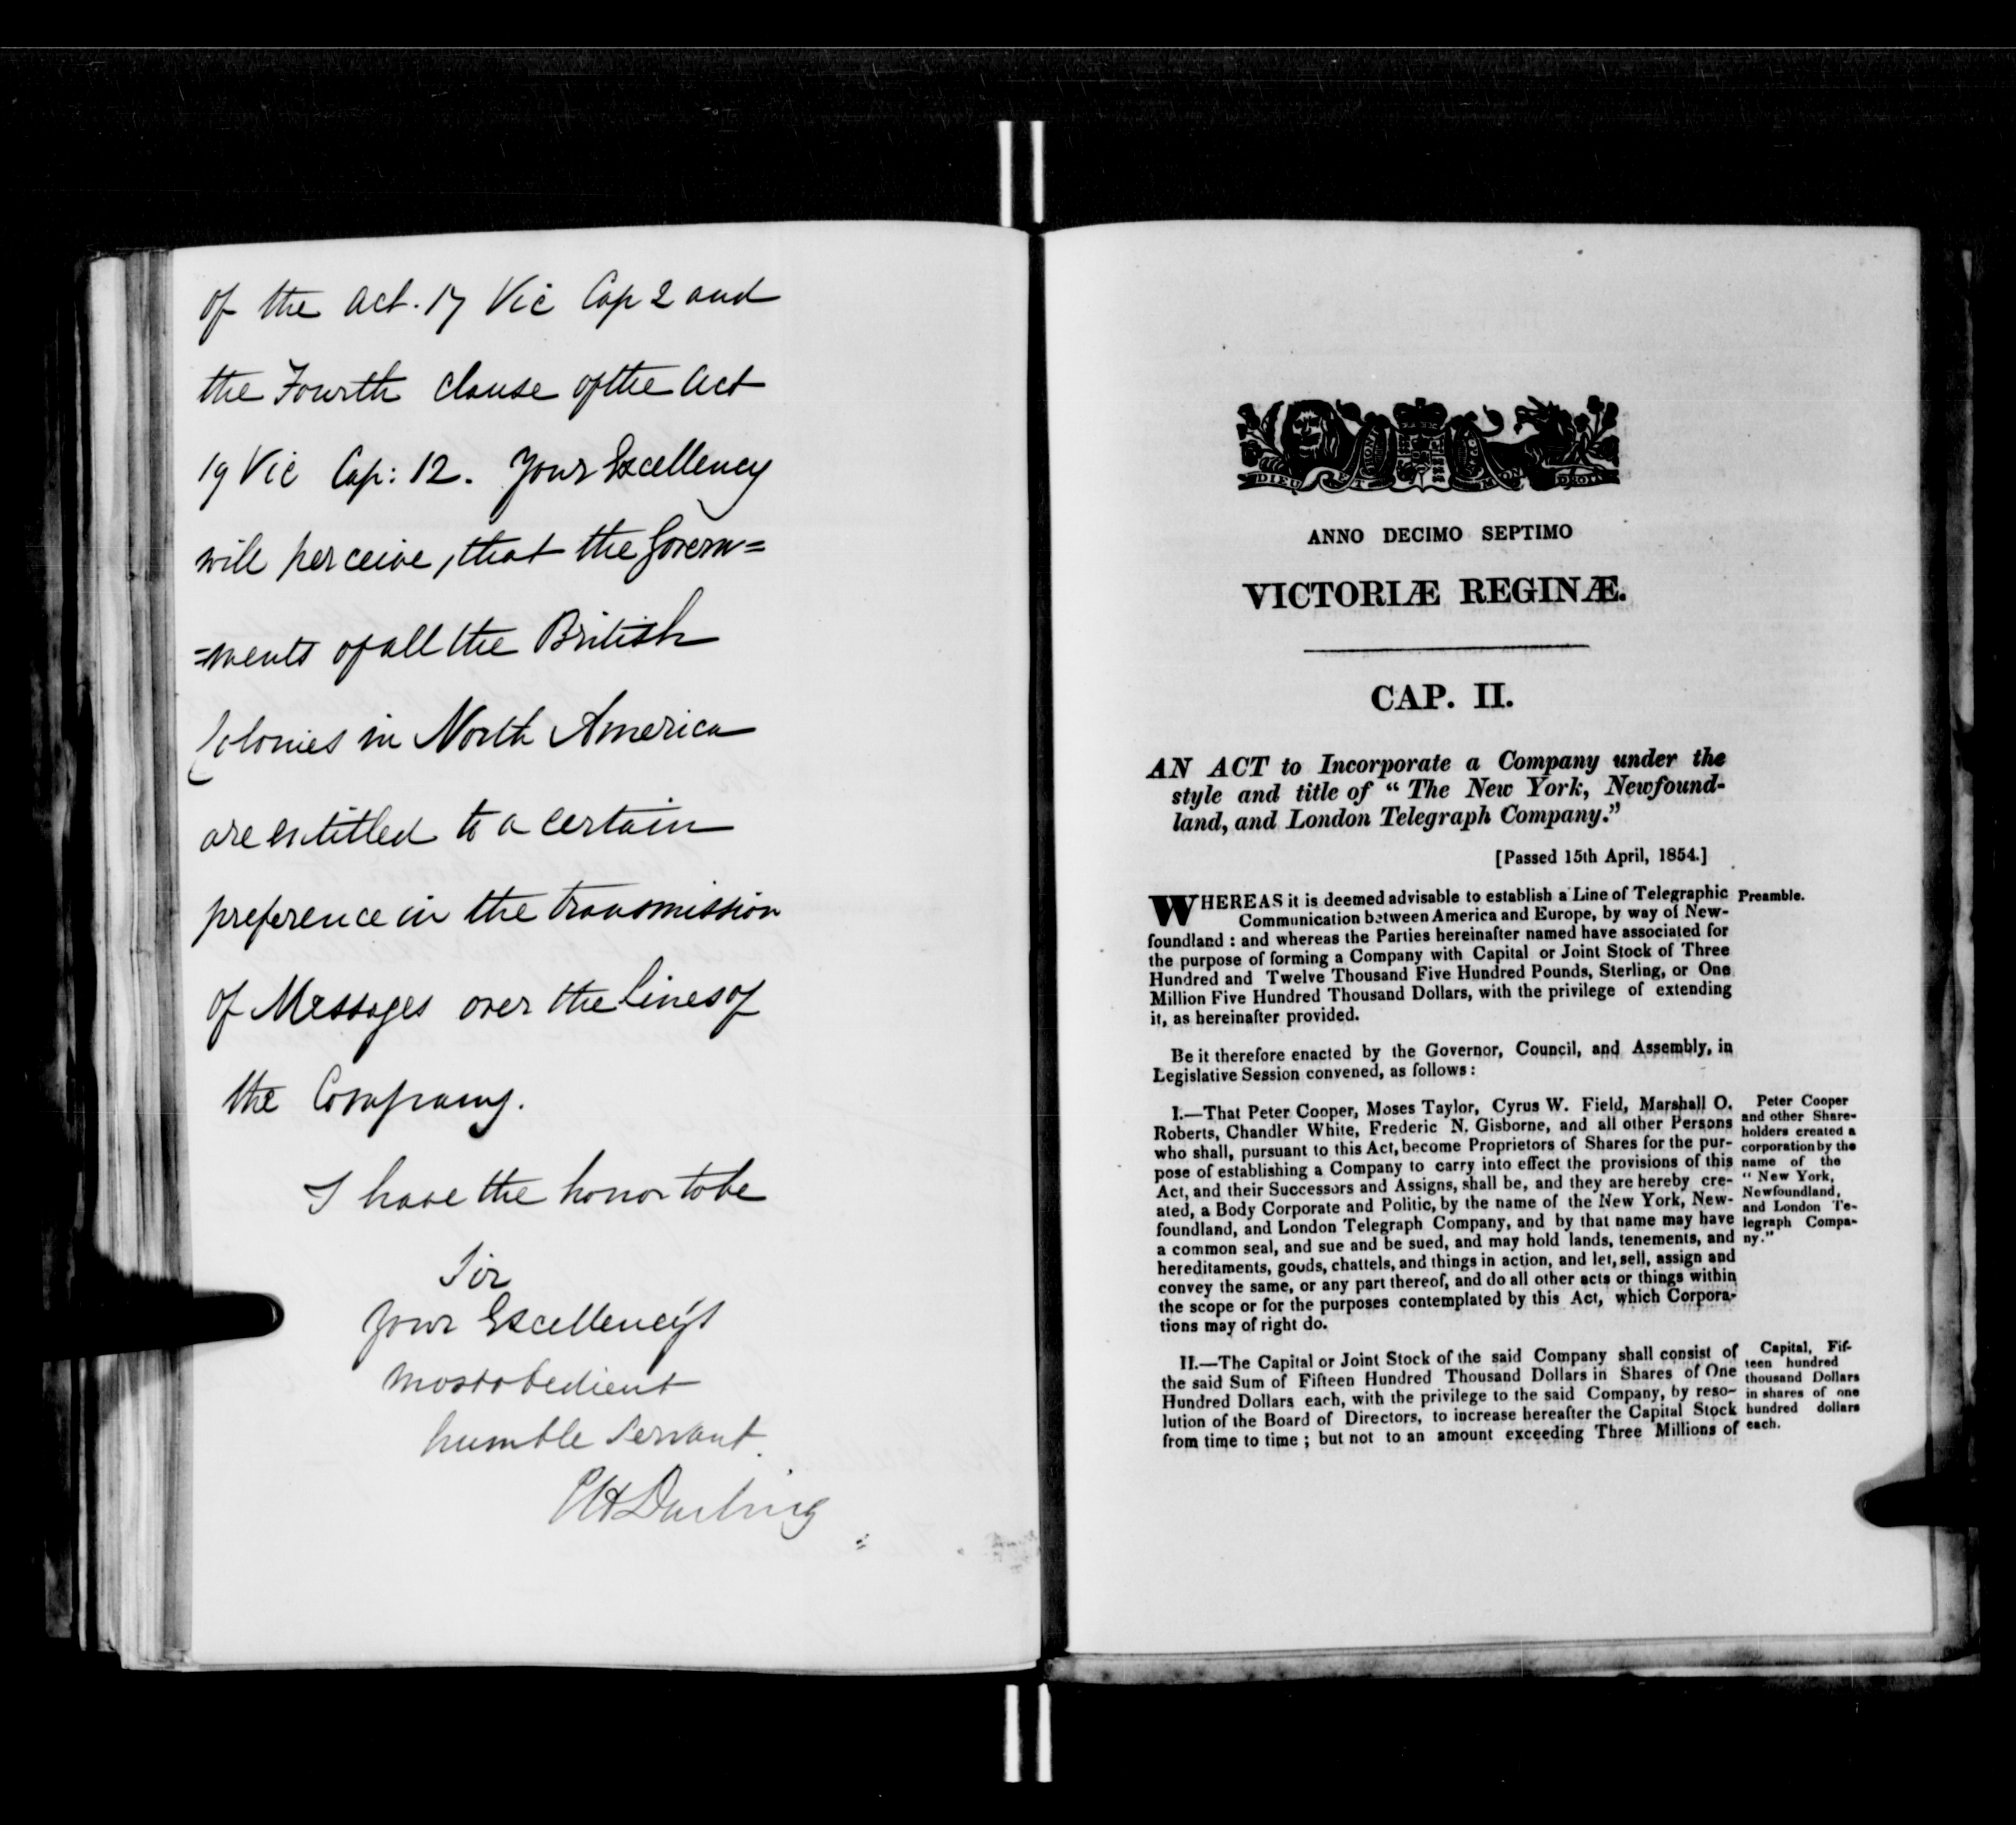 of the Act. 17 Vic Cap 2 and
the Fourth Clause of the Act
19 Vic Cap: 12. Your Excellency
will perceive, that the Govern=
=ments of all the British
Colonies in North America
are entitled to a certain
preference in the transmission
of Messages over the lines of
the Company.
I have the honor to be
Sir
Your Excellency's
most obedient
humble Servant.
CH Darling
DIEU ET MON DROIT
ANNO DECIMO SEPTIMO
VICTORIÆ REGINÆ.
CAP. II.
AN ACT to Incorporate a Company under the
style and title of “ The New York, Newfound-
land, and London Telegraph Company.”
[Passed 15th April, 1854.]
WHEREAS it is deemed advisable to establish a Line of Telegraphic
Communication between America and Europe, by way of New-
foundland : and whereas the Parties hereinafter named have associated for
the purpose of forming a Company with Capital or Joint Stock of Three
Hundred and Twelve Thousand Five Hundred Pounds, Sterling, or One
Million Five Hundred Thousand Dollars, with the privilege of extending
it, as hereinafter provided.
Preamble.
Be it therefore enacted by the Governor, Council, and Assembly, in
Legislative Session convened, as follows :
I.—That Peter Cooper, Moses Taylor, Cyrus W. Field, Marshall O.
Roberts, Chandler White, Frederic N. Gisborne, and all other Persons
who shall, pursuant to this Act, become Proprietors of Shares for the pur-
pose of establishing a Company to carry into effect the provisions of this
Act, and their Successors and Assigns, shall be, and they are hereby cre-
ated, a Body Corporate and Politic, by the name of the New York, New-
foundland, and London Telegraph Company, and by that name may have
a common seal, and sue and be sued, and may hold lands, tenements, and
hereditaments, goods, chattels, and things in action, and let, sell, assign and
convey the same, or any part thereof, and do all other acts or things within
the scope or for the purposes contemplated by this Act, which Corpora-
tions may of right do.
Peter Cooper
and other Share-
holders created a
corporation by the
name of the
“ New York,
Newfoundland,
and London Te-
legraph Compa-
ny.”
II.—The Capital or Joint Stock of the said Company shall consist of
the said Sum of Fifteen Hundred Thousand Dollars in Shares of One
Hundred Dollars each, with the privilege to the said Company, by reso-
lution of the Board of Directors, to increase hereafter the Capital Stock
from time to time ; but not to an amount exceeding Three Millions of
Capital, Fif-
teen hundred
thousand Dollars
in shares of one
hundred dollars
each.